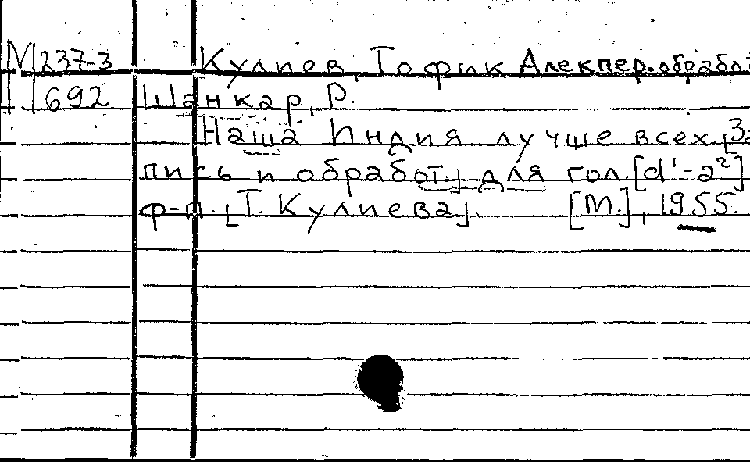 М 237-3 Кулиев, Тофик Алекпер. обработ
692 Шанкар, Р.
Наша Индия лучше всех, [За
пись и обработ.] для гол. [d'-a²]
ф-п. [Т. Кулиева]. [М.], 1955.